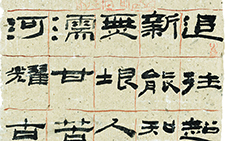 追往
新能和
無垠人
濡甘苦
河耀古